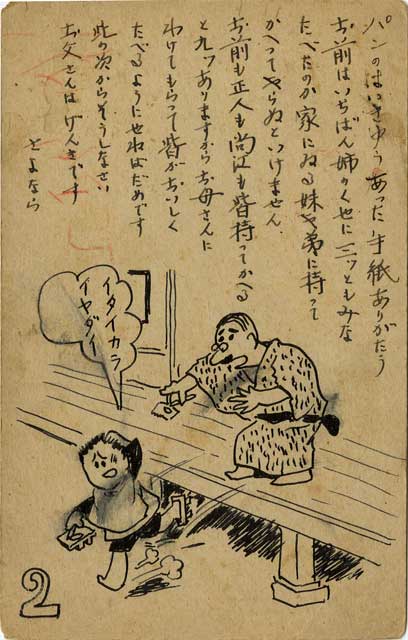 パンのはいきゆうあつた手紙ありがたう
お前はいちばん姉のくせに三ツともみな
たべたのか家にゐる妹や弟に持つて
かへつてやらぬといけません
お前も正人も尚江も皆持つてかへる
と九ツありますからお母さんに
わけてもらつて皆がおいしく
たべるようにせねばだめです
此の次からそうしなさい
お父さんはげんきです
さよなら
イタイカラ
イヤダイ
2